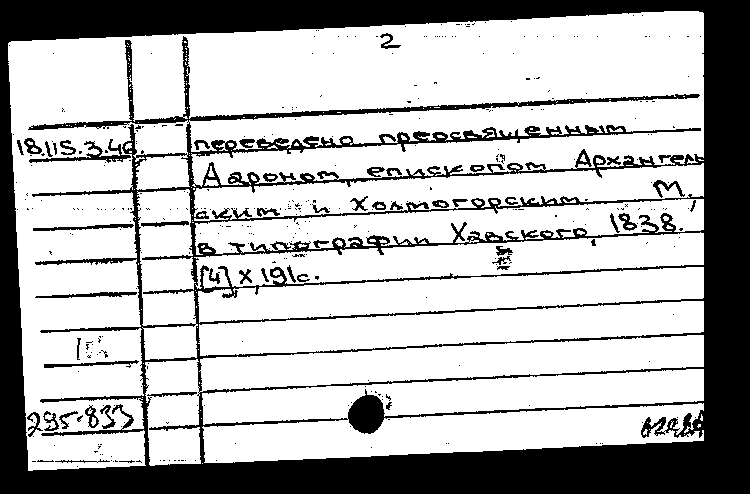 2
18.115.3.46.
переведено преосвященным
Аароном, епископом Архангель
ским и Холмогорским. М.,
в типографии Хавского, 1838.
[4], X, 191с.
295-833